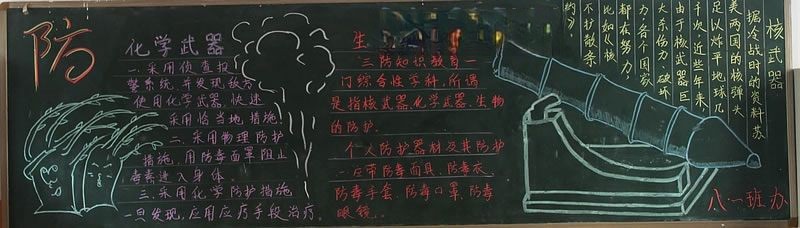 防
化学武器
一.采用侦查报
警系统,并发现敌方
使用化学武器,快速
采用恰当地措施.
二.采用物理防护
措施,用防毒面罩阻止
毒素进入身体.
三.采用化学防护措施
一旦发现,应用应疗手段治疗.
生
三防知识教育一
门综合性学科,所谓
是指核武器,化学武器,生物
的防护.
个人防护器材及其防护
一应带防毒面具,防毒衣,
防毒手套,防毒口罩,防毒
眼镜.
核武器
据冷战时的资料苏
美两国的核弹头
足以炸平地球几
千次.近些年来,
由于核武器巨
大杀伤力,破坏
力各个国家
都在努力,
比如《核
不扩散条
约》.
八一班办